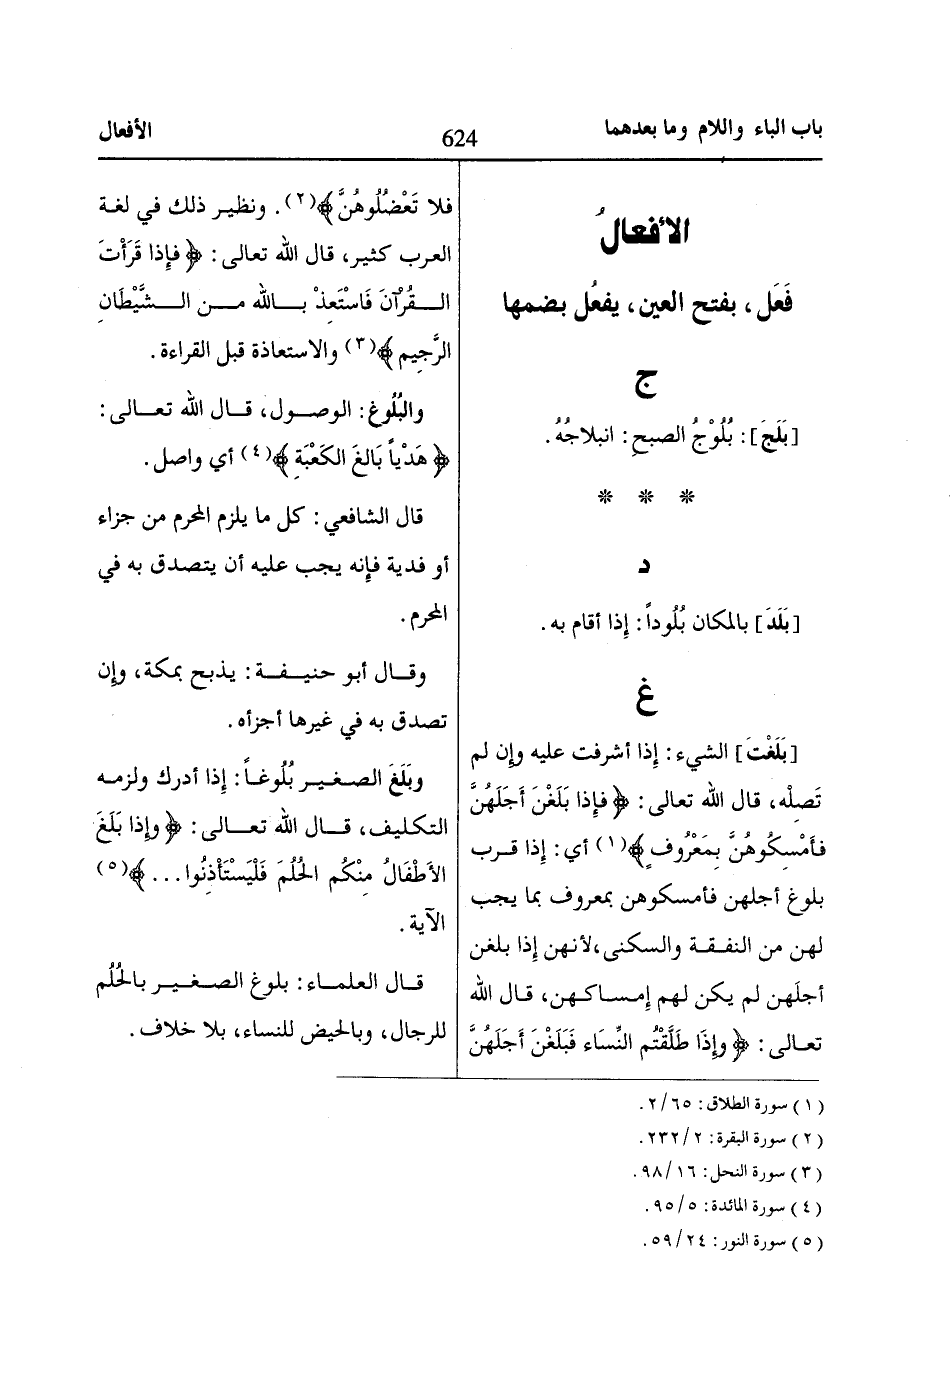 باب الباء واللام وما بعدهما
624
الأفعال
الأفعالُ
فَعَل، بفتح العين، يفعُل بضمها
ج
[بَلَجَ]: بُلُوْجُ الصبحِ: انبلاجُهُ.
* * *
د
[بَلَدَ] بالمكان بُلُوداً: إذا أقام به.
غ
[بَلَغْتَ] الشيء: إذا أشرفت عليه وإن لم
تَصلْه، قال الله تعالى: ﴿ فإذا بَلَغْنَ أَجَلَهُنَّ
فأَمْسِكُوهُنَّ بِمَعْرُوفٍ ﴾(١) أي: إذا قرب
بلوغ أجلهن فأمسكوهن بمعروف بما يجب
لهن من النفقة والسكنى،لأنهن إذا بلغن
أجلَهن لم يكن لهم إمساكهن، قال الله
تعالى: ﴿ وإِذَا طَلَّقْتُم النِّسَاء فَبَلَغْنَ أَجَلَهُنَّ
فلا تَعْضُلُوهُنَّ ﴾(٢). ونظير ذلك في لغة
العرب كثير، قال الله تعالى: ﴿ فإِذا قَرَأْتَ
القُرْآنَ فَاسْتَعِذْ بالله من الشَّيْطَانِ
الرَّجِيم ﴾(٣) والاستعاذة قبل القراءة.
والبُلُوغ: الوصول، قال الله تعالى:
﴿ هَدْياً بَالِغَ الكَعْبَةِ ﴾(٤) أي واصل.
قال الشافعي: كل ما يلزم المحرم من جزاء
أو فدية فإنه يجب عليه أن يتصدق به في
المحرم.
وقال أبو حنيفة: يذبح بمكة، وإن
تصدق به في غيرها أجزأه.
وبَلَغَ الصغير بُلُوغاً: إذا أدرك ولزمه
التكليف، قال الله تعالى: ﴿ وإذا بَلَغَ
الأَطْفَالُ مِنْكُم الحُلُمَ فَلْيَسْتَأْذِنُوا... ﴾(٥)
الآية.
قال العلماء: بلوغ الصغير بالحُلُم
للرجال، وبالحيض للنساء، بلا خلاف.
(١) سورة الطلاق: ٢/٦٥.
(٢) سورة البقرة: ٢٣٢/٢.
(٣) سورة النحل: ٩٨/١٦.
(٤) سورة المائدة: ٩٥/٥.
(٥) سورة النور: ٥٩/٢٤.